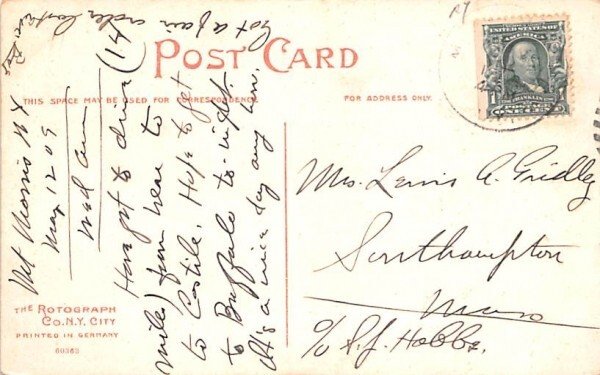 POST CARD
THIS SPACE MAY BE USED FOR CORRESPONDENCE
FOR ADDRESS ONLY.
UNITED STATES OF AMERICA
FRANKLIN
1
ONE CENT
Mt Morris N.Y.
May 12 09
Have got to drive (14
miles) from here to
to Castile. Hope to get
to Buffalo to-night.
It's a nice day any how.
Got a pair
order
Mrs. Lewis A. Gridley
Southampton
Mass
c/o S. J. Hobbs.
THE ROTOGRAPH
CO. N.Y. CITY
PRINTED IN GERMANY
60363